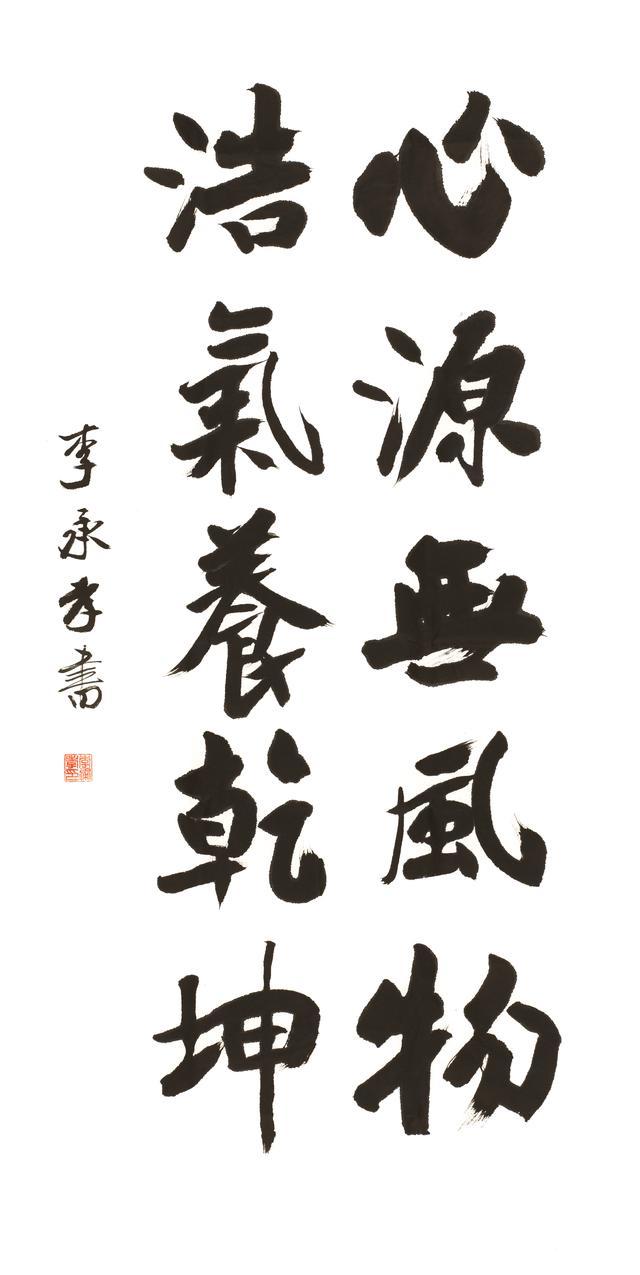 心源無風物
浩氣養乾坤
李承孝書